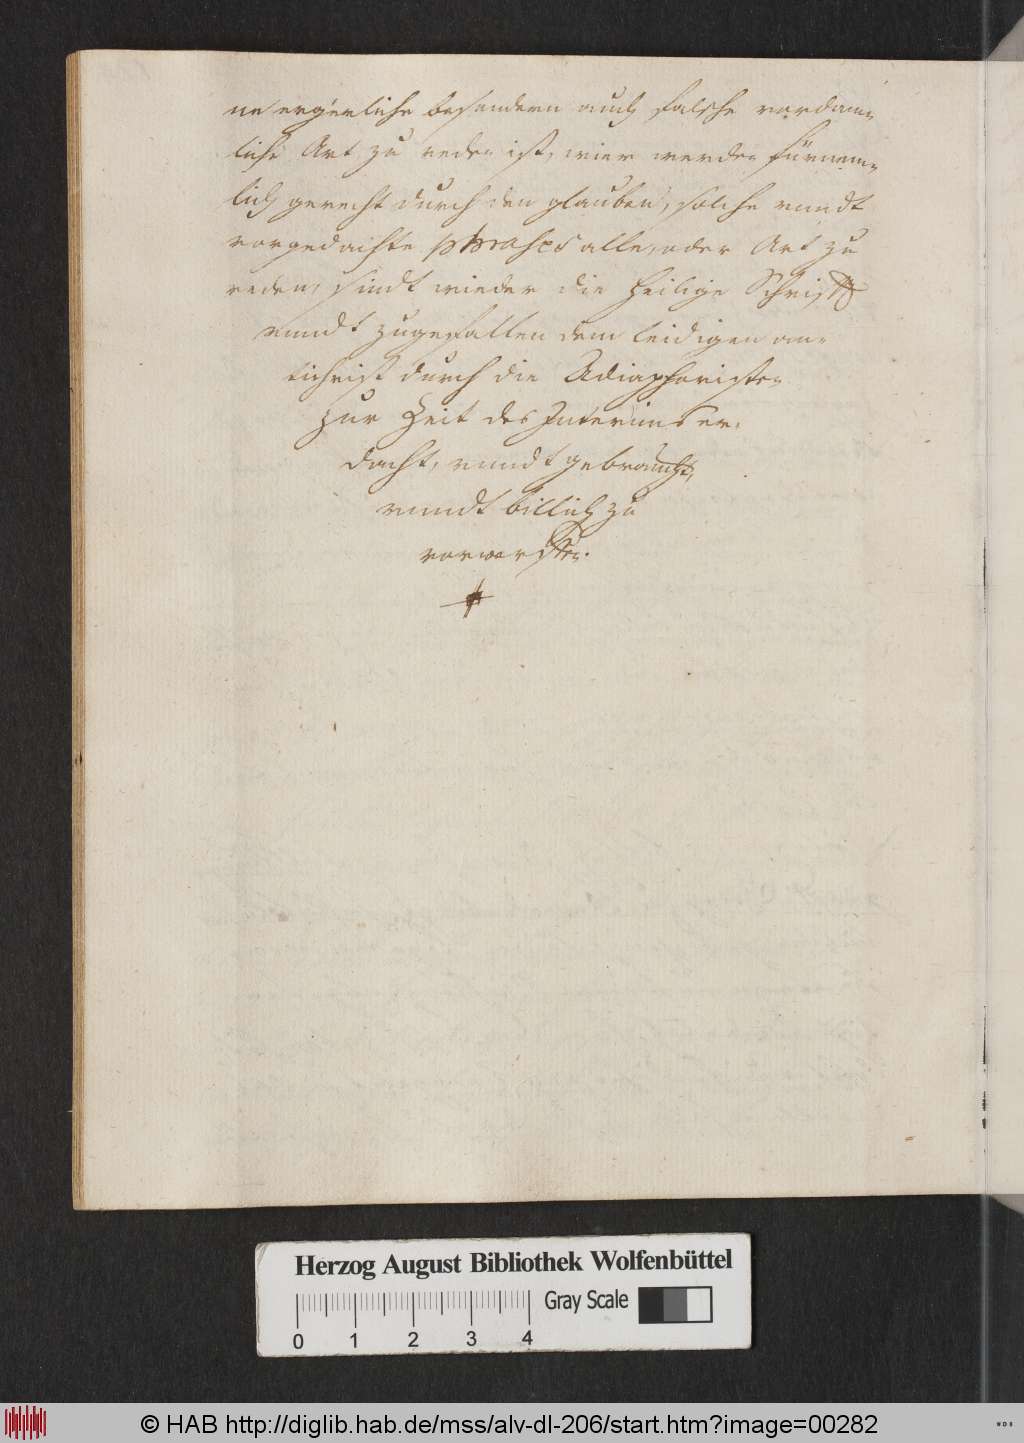 ne ergerliche besondern auch falsche vordam-
liche Art zu reden ist, wier werden fürnem-
lich gerecht durch den glauben, solche vundt
vorgedachte phrases alle, oder Art zu
reden, sindt wieder die Heilige Schrifft
vundt zugefallen dem leidigen an-
tichrist durch die Adiaphoristen
zur Zeit des Interims er-
dacht, vundt gebraucht,
vundt billich zu
vorwerffen.
Herzog August Bibliothek Wolfenbüttel
Gray Scale
0 1 2 3 4
© HAB http://diglib.hab.de/mss/alv-dl-206/start.htm?image=00282